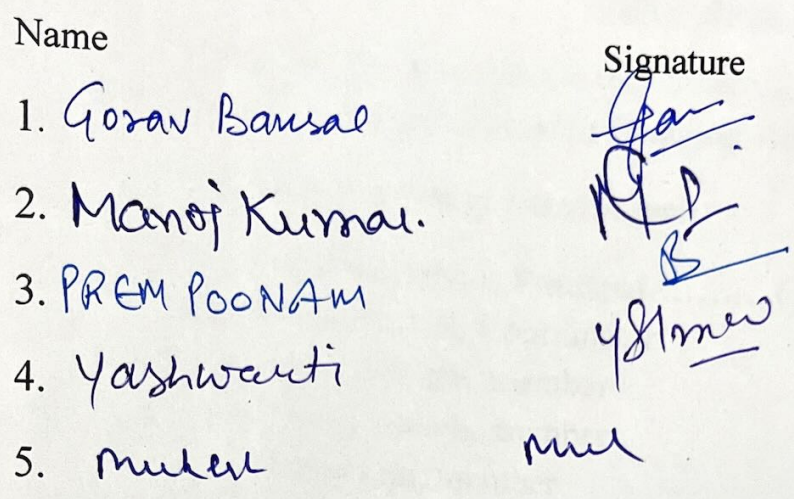 Name
Signature
1. Gorav Bansal
2. Manoj Kumar.
3. PREM POONAM
4. Yashwanti
5. Mukesh